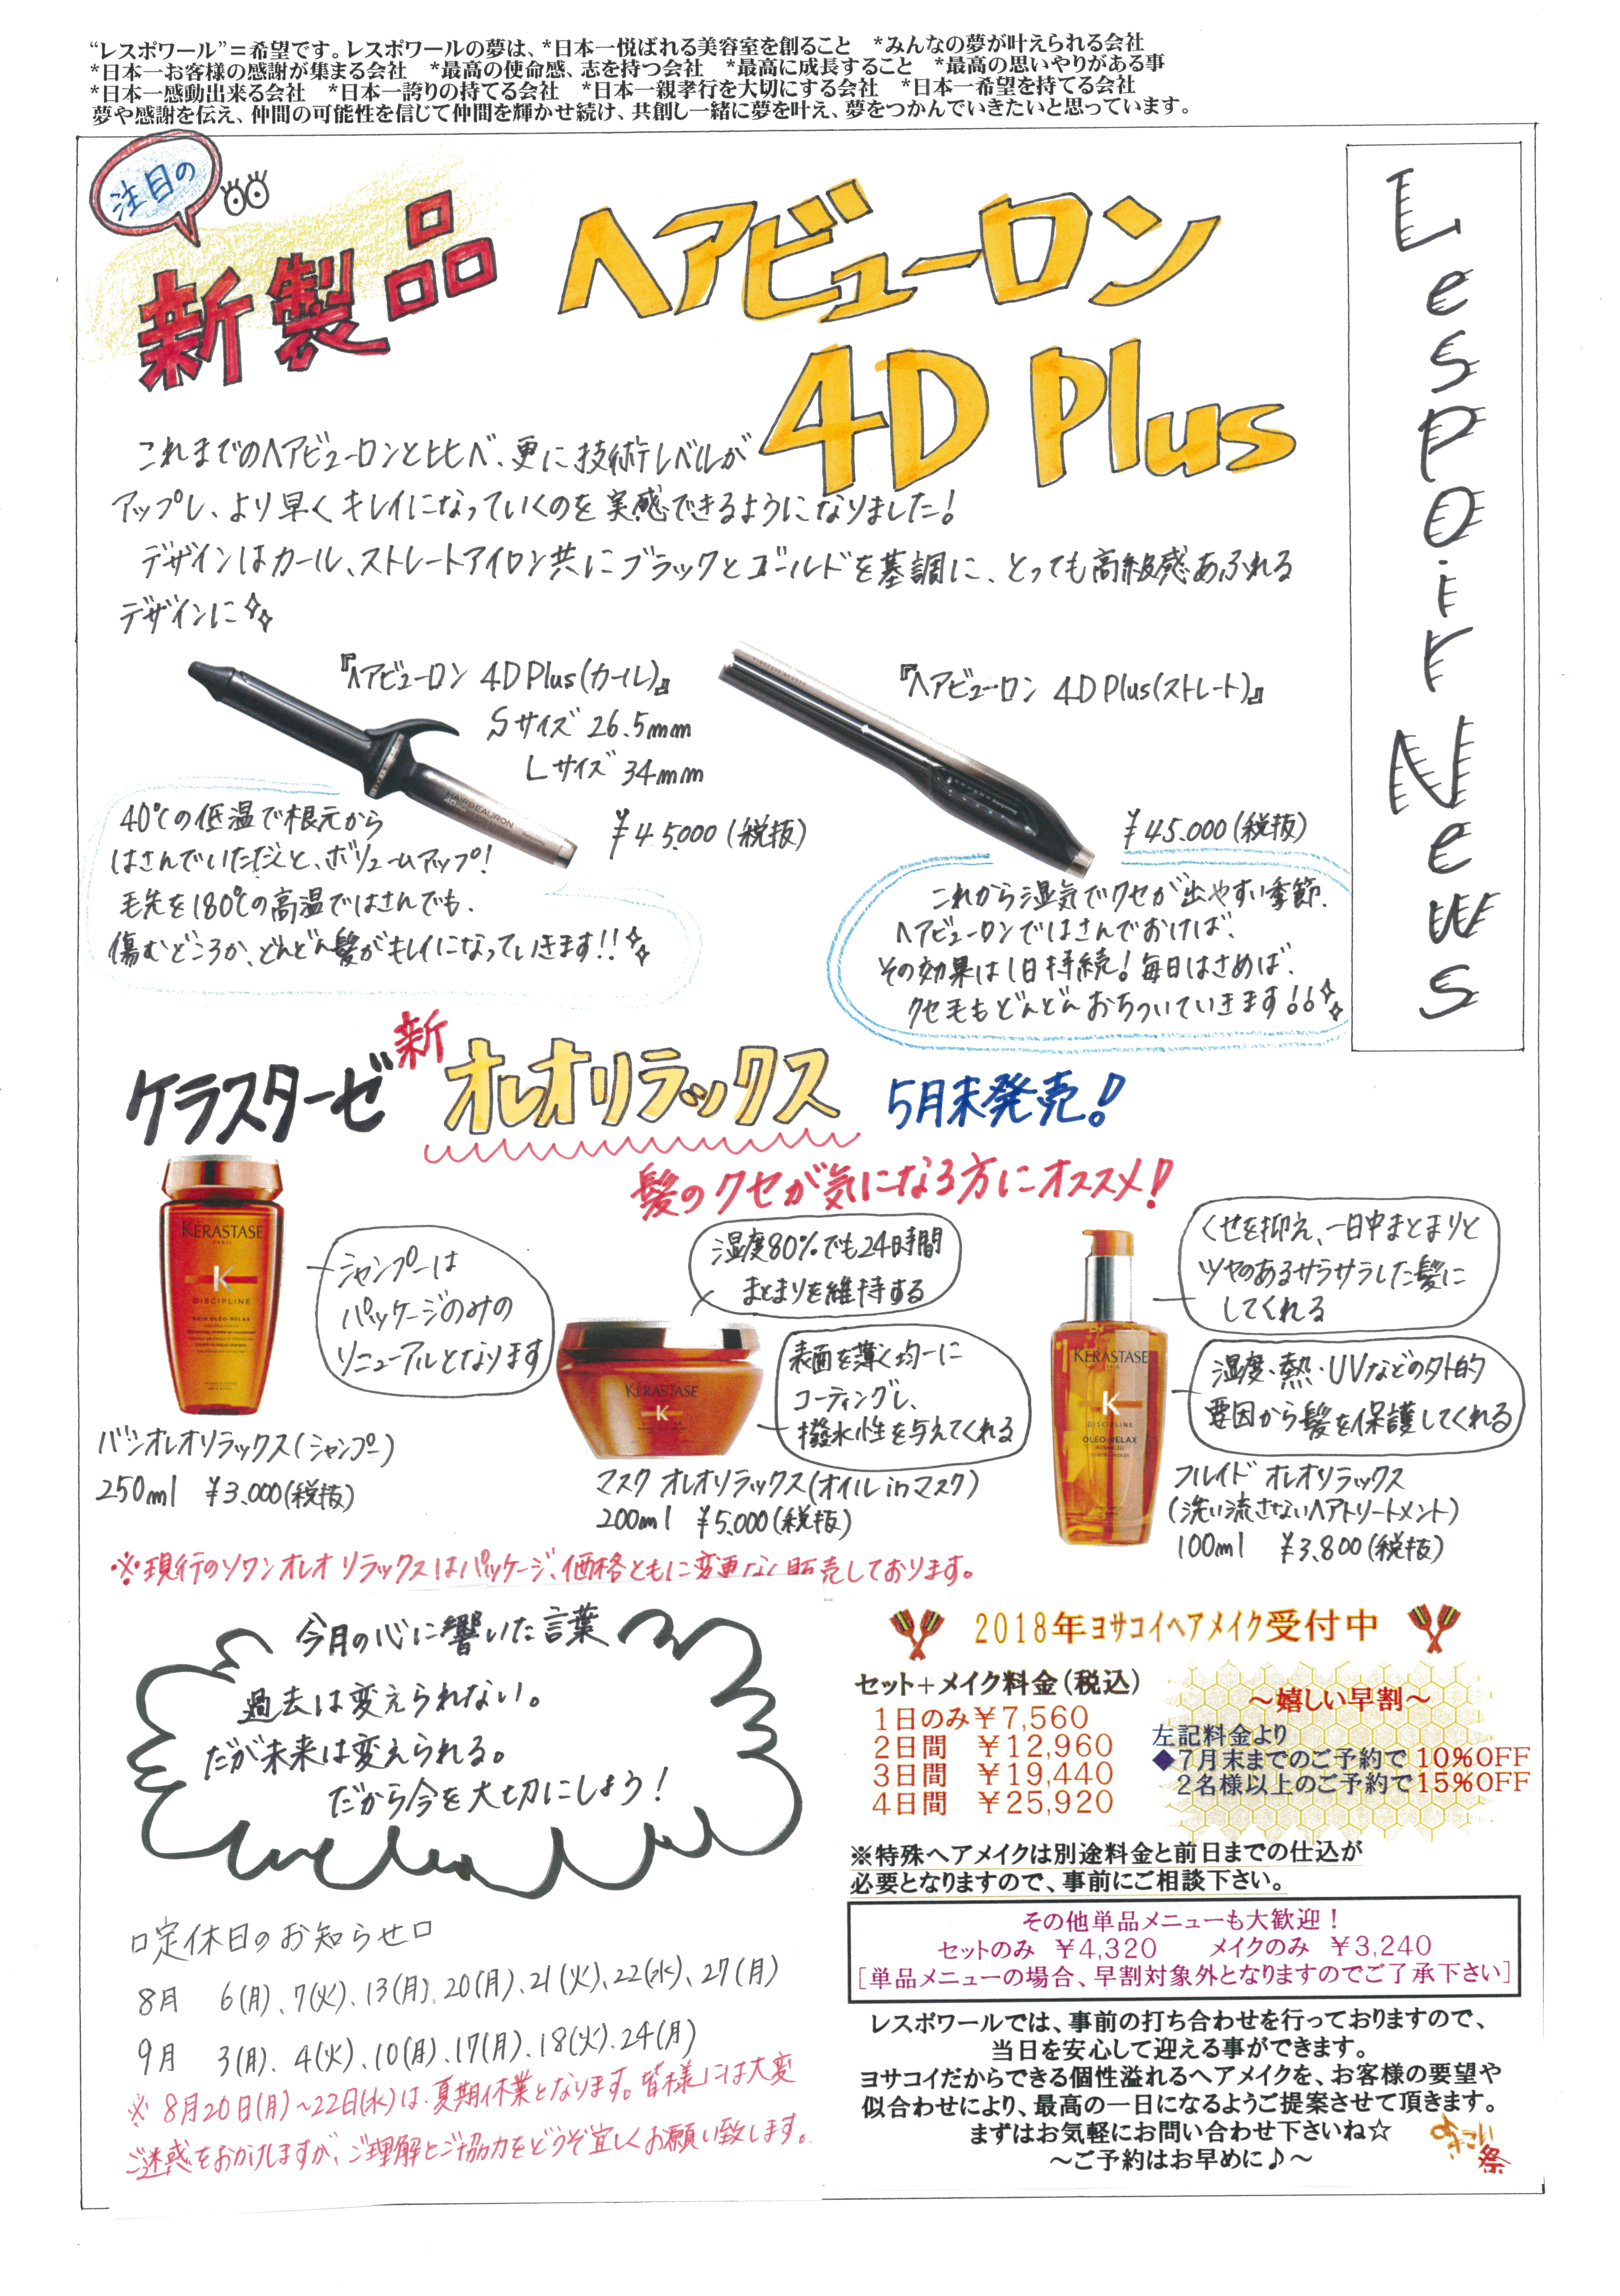 “レスポワール”=希望です。レスポワールの夢は、*日本一悦ばれる美容室を創ること　*みんなの夢が叶えられる会社
*日本一お客様の感謝が集まる会社　*最高の使命感、志を持つ会社　*最高に成長すること　*最高の思いやりがある事
*日本一感動出来る会社　*日本一誇りの持てる会社　*日本一親孝行を大切にする会社　*日本一希望を持てる会社
夢や感謝を伝え、仲間の可能性を信じて仲間を輝かせ続け、共創し一緒に夢を叶え、夢をつかんでいきたいと思っています。
Lespoir News
注目の
新製品
ヘアビューロン
4D Plus
これまでのヘアビューロンと比べ、更に技術レベルが
アップし、より早くキレイになっていくのを実感できるようになりました!
デザインはカール、ストレートアイロン共にブラックとゴールドを基調に、とっても高級感あふれる
デザインに
『ヘアビューロン 4D Plus(カール)』
Sサイズ 26.5mm
Lサイズ 34mm
¥45,000(税抜)
HAIRBEAURON
40℃の低温で根元から
はさんでいただくと、ボリュームアップ!
毛先を180℃の高温ではさんでも、
傷むどころか、どんどん髪がキレイになっていきます!!
『ヘアビューロン 4D Plus(ストレート)』
¥45.000(税抜)
これから湿気でクセが出やすい季節、
ヘアビューロンではさんでおけば、
その効果は1日持続!毎日はさめば、
クセ毛もどんどんおちついていきます!!
ケラスターゼ 新 オレオリラックス 5月末発売!
髪のクセが気になる方にオススメ!
KÉRASTASE
PARIS
K
DISCIPLINE
BAIN OLÉO-RELAX
シャンプーは
パッケージのみの
リニューアルとなります
バンオレオリラックス(シャンプー)
250ml ¥3,000(税抜)
湿度80%でも24時間
まとまりを維持する
KÉRASTASE
K
表面を薄く均一に
コーティングし、
撥水性を与えてくれる
マスク オレオリラックス(オイルinマスク)
200ml ¥5,000(税抜)
くせを抑え、一日中まとまりと
ツヤのあるサラサラした髪に
してくれる
KÉRASTASE
PARIS
K
DISCIPLINE
OLÉO-RELAX
ADVANCED
湿度・熱・UVなどの外的
要因から髪を保護してくれる
フルイド オレオリラックス
(洗い流さないヘアトリートメント)
100ml ¥3,800(税抜)
※現行のソワンオレオリラックスはパッケージ、価格ともに変更なく販売しております。
今月の心に響いた言葉
過去は変えられない。
だが未来は変えられる。
だから今を大切にしよう!
□定休日のお知らせ□
8月 6(月)、7(火)、13(月)、20(月)、21(火)、22(水)、27(月)
9月 3(月)、4(火)、10(月)、17(月)、18(火)、24(月)
※8月20日(月)~22日(水)は、夏期休業となります。皆様には大変
ご迷惑をおかけしますが、ご理解とご協力をどうぞ宜しくお願い致します。
2018年ヨサコイヘアメイク受付中
セット+メイク料金(税込)
1日のみ¥7,560
2日間　¥12,960
3日間　¥19,440
4日間　¥25,920
~嬉しい早割~
左記料金より
◆7月末までのご予約で 10%OFF
2名様以上のご予約で15%OFF
※特殊ヘアメイクは別途料金と前日までの仕込が
必要となりますので、事前にご相談下さい。
その他単品メニューも大歓迎!
セットのみ　¥4,320　　メイクのみ　¥3,240
[単品メニューの場合、早割対象外となりますのでご了承下さい]
レスポワールでは、事前の打ち合わせを行っておりますので、
当日を安心して迎える事ができます。
ヨサコイだからできる個性溢れるヘアメイクを、お客様の要望や
似合わせにより、最高の一日になるようご提案させて頂きます。
まずはお気軽にお問い合わせ下さいね☆
~ご予約はお早めに♪~
よさこい祭